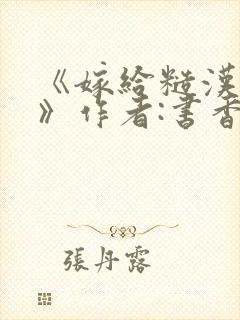 《嫁給糙漢
》作者:書香
張丹露